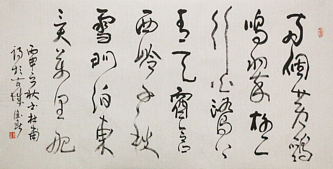 百個黄鸝
鳴翠柳一
行白鷺上
青天窗含
西岭千秋
雪門泊東
吴萬里船
丙申立秋子杜甫
詩於